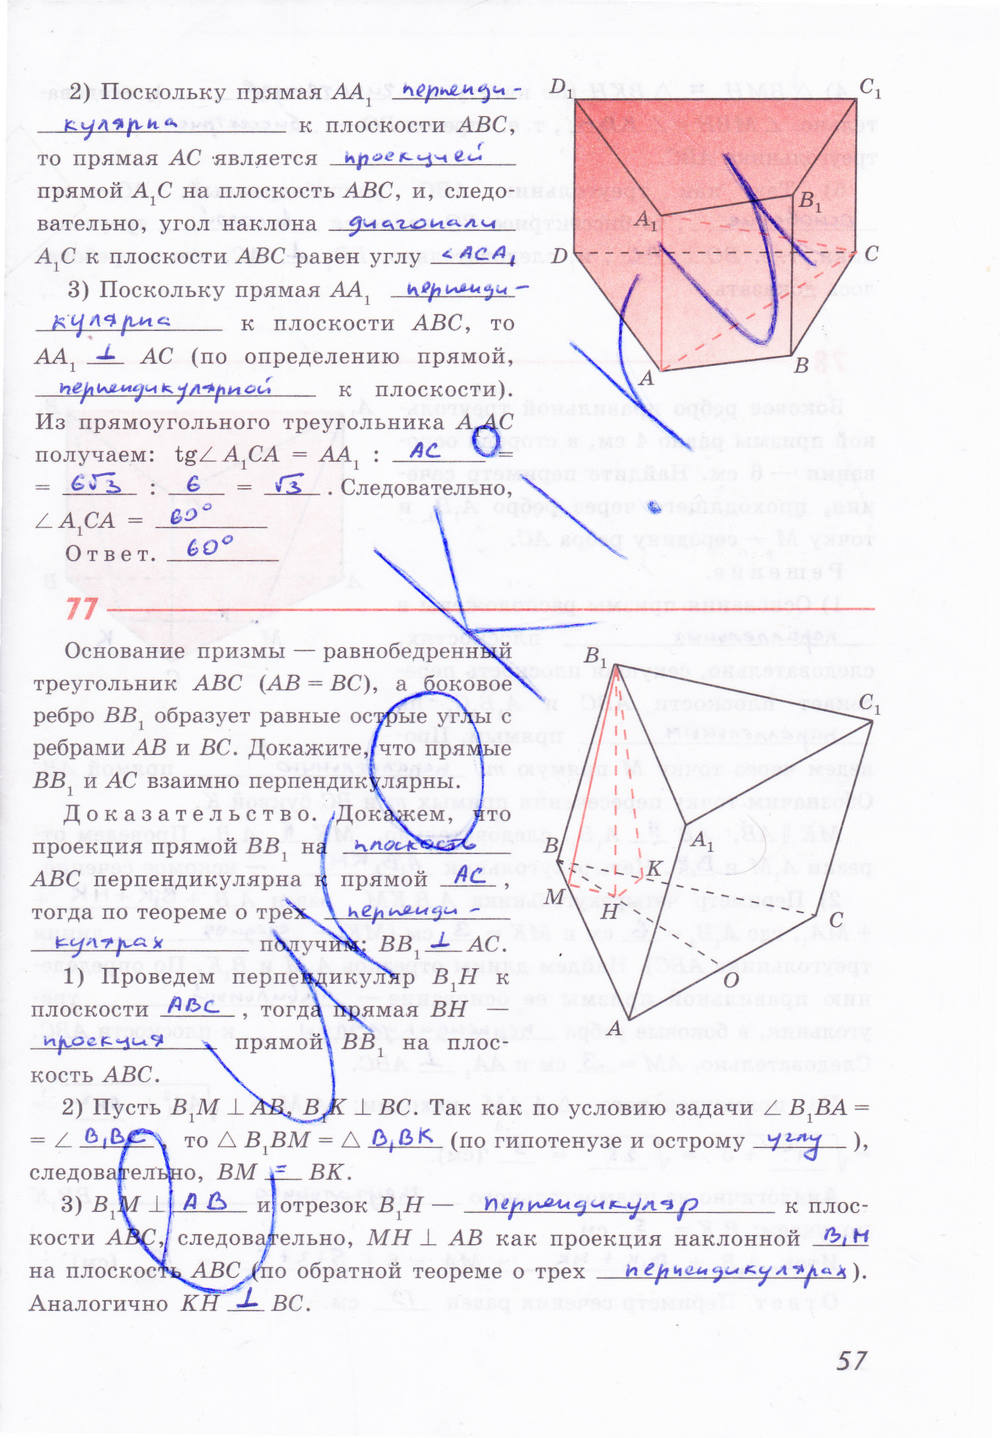 2) Поскольку прямая AA₁ перпенди-
кулярна к плоскости ABC,
то прямая AC является проекцией
прямой A₁C на плоскость ABC, и, следо-
вательно, угол наклона диагонали
A₁C к плоскости ABC равен углу <ACA₁
3) Поскольку прямая AA₁ перпенди-
кулярна к плоскости ABC, то
AA₁ ⊥ AC (по определению прямой,
перпендикулярной к плоскости).
Из прямоугольного треугольника A₁AC
получаем: tg∠A₁CA = AA₁ : AC =
= 6√3 : 6 = √3. Следовательно,
∠A₁CA = 60°
Ответ. 60°
D₁ C₁
B₁
A₁
D C
B
A
77
Основание призмы — равнобедренный
треугольник ABC (AB = BC), а боковое
ребро BB₁ образует равные острые углы с
ребрами AB и BC. Докажите, что прямые
BB₁ и AC взаимно перпендикулярны.
Доказательство. Докажем, что
проекция прямой BB₁ на плоскость
ABC перпендикулярна к прямой AC,
тогда по теореме о трех перпенди-
кулярах получим: BB₁ ⊥ AC.
1) Проведем перпендикуляр B₁H к
плоскости ABC, тогда прямая BH —
проекция прямой BB₁ на плос-
кость ABC.
B₁
C₁
A₁
B
K
M
H
C
O
A
2) Пусть B₁M ⊥ AB, B₁K ⊥ BC. Так как по условию задачи ∠ B₁BA =
= ∠ B₁BC, то △ B₁BM = △ B₁BK (по гипотенузе и острому углу),
следовательно, BM = BK.
3) B₁M ⊥ AB и отрезок B₁H — перпендикуляр к плос-
кости ABC, следовательно, MH ⊥ AB как проекция наклонной B₁M
на плоскость ABC (по обратной теореме о трех перпендикулярах).
Аналогично KH ⊥ BC.
57